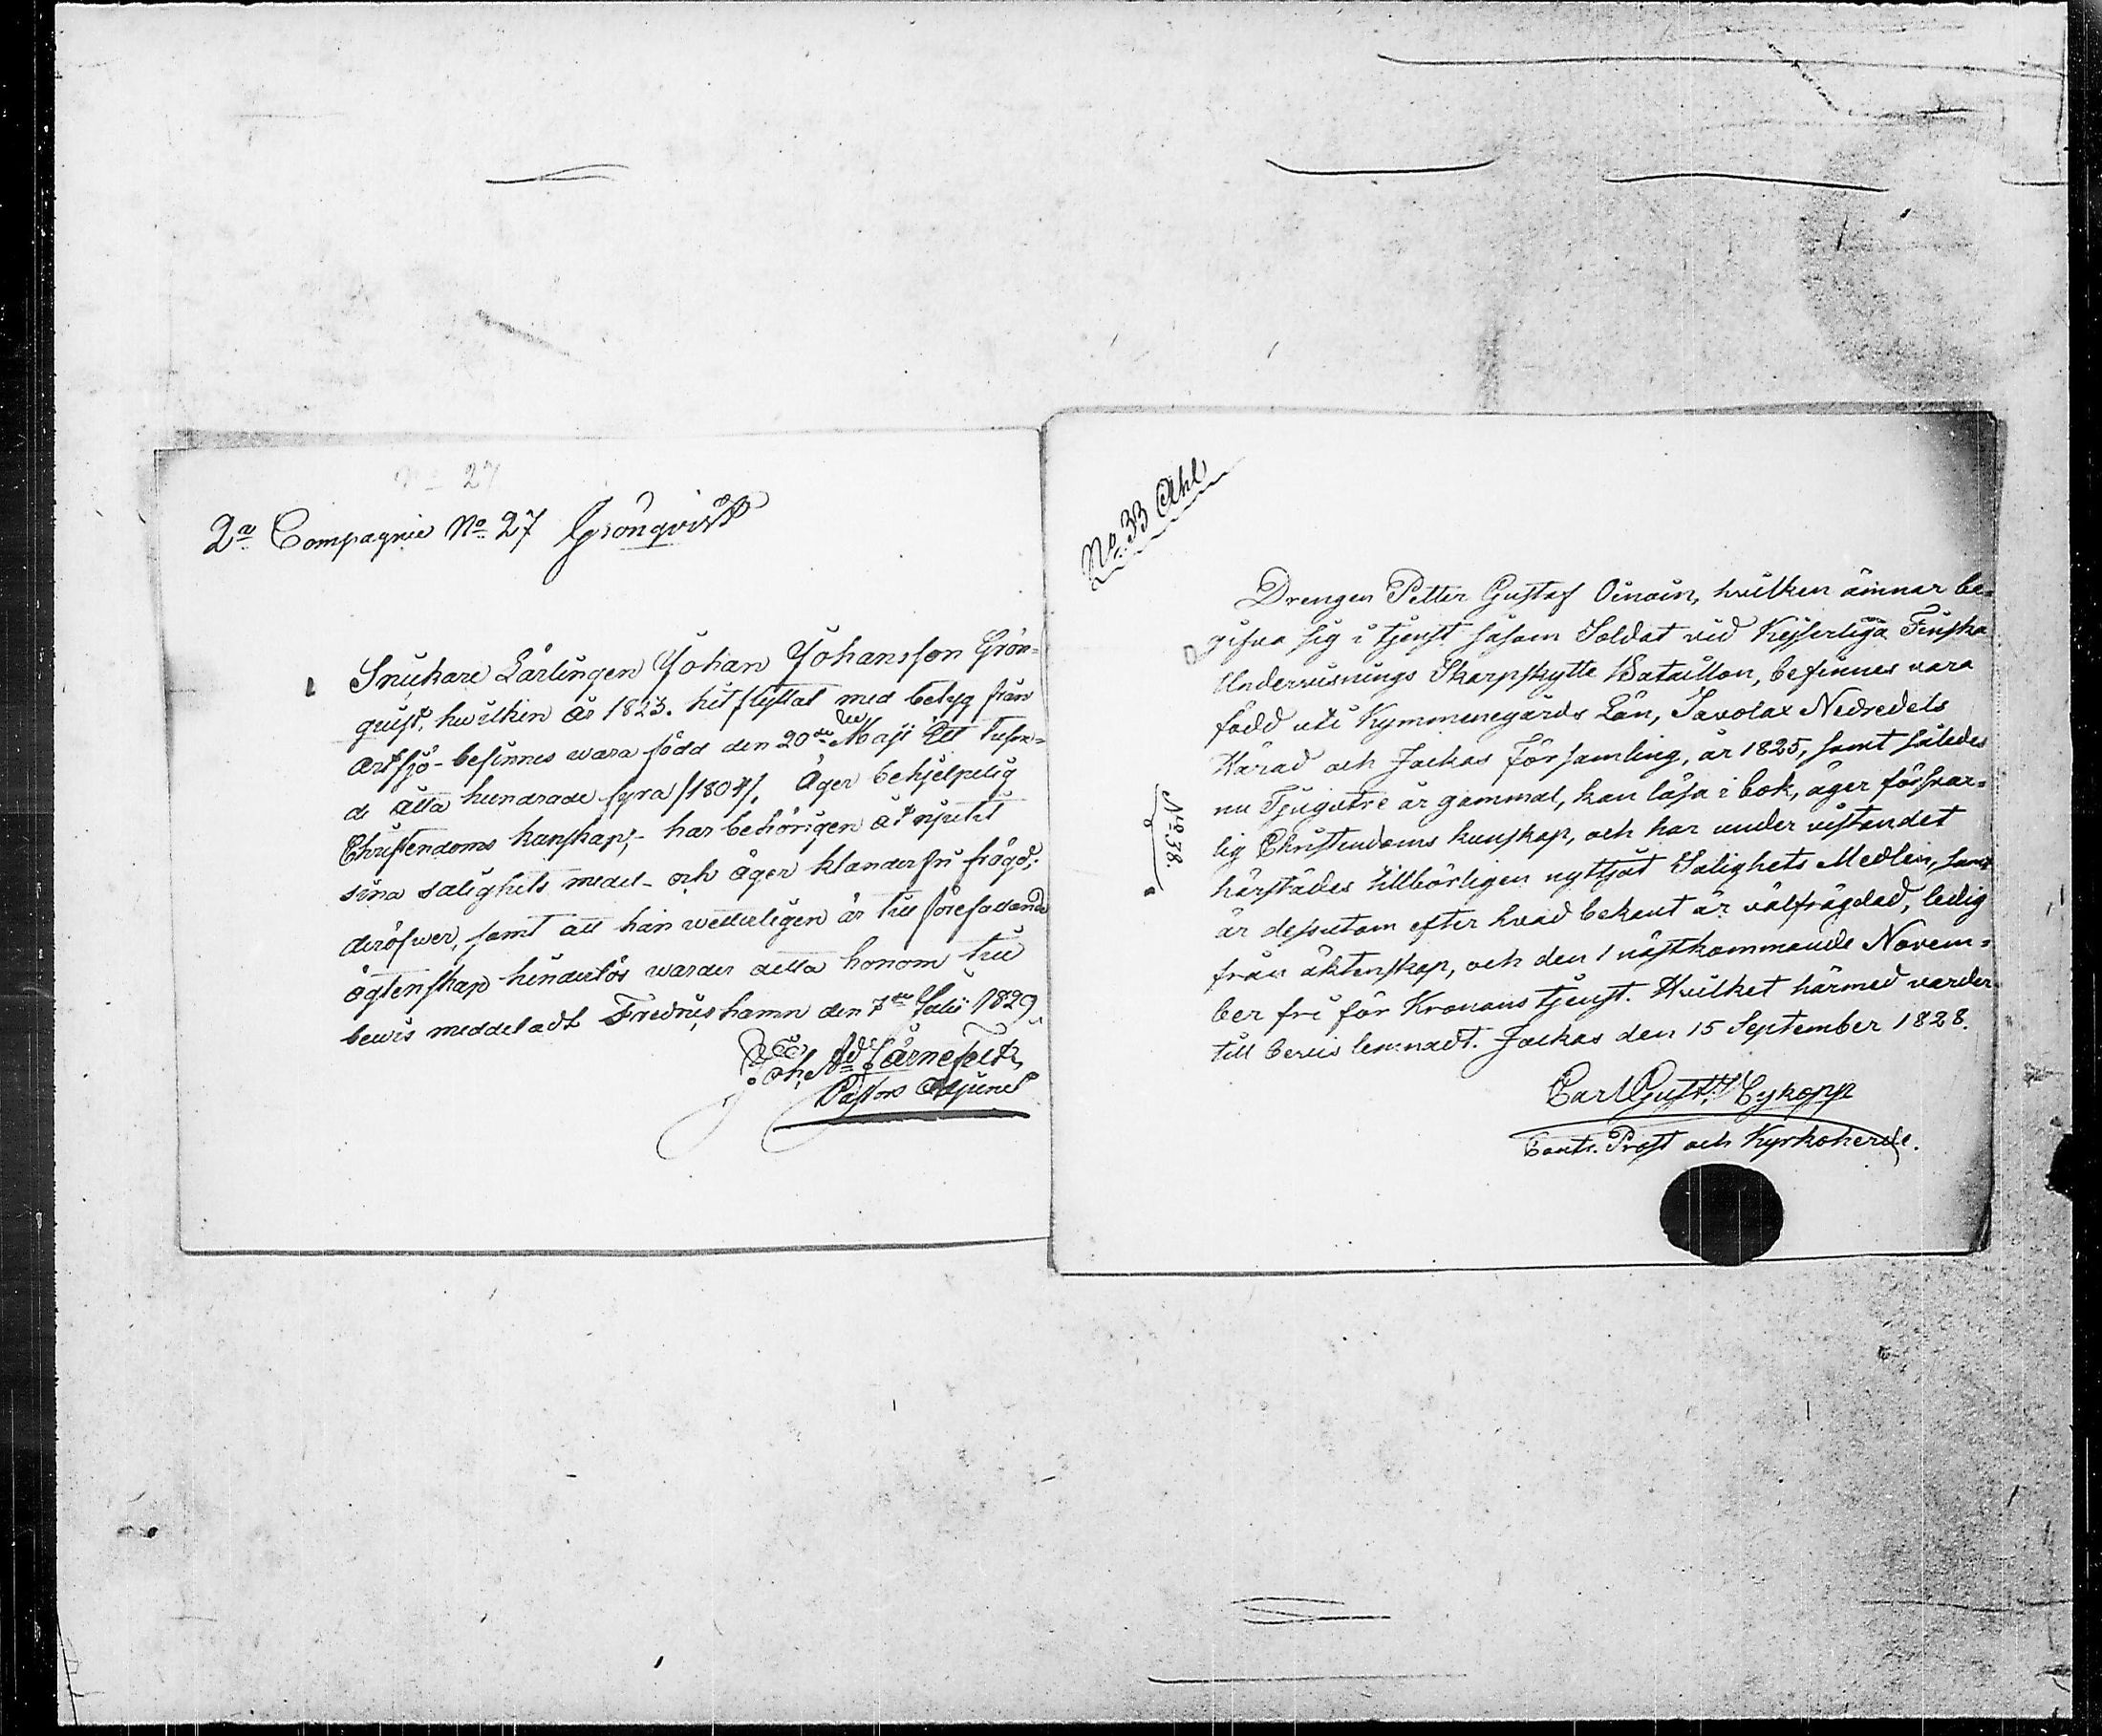 No 27
2a Compagnie No 27 Grönqvist
Snickare Lärlingen Johan Johansson Grön-
quist, hwilken år 1823. hit flyttat med betyg från
Artsjö - befinnes wara född den 20de Maji Ett tusen-
de åtta hundrade fyra /1804/, Äger behjelpelig
Christendoms kunskap, - har behörigen åtnjutit
sina salighets medel - och äger klanderfri frägd;
deröfwer, samt att han wetterligen är till förefallande
ägtenskap hinderlös warder detta honom till
bewis meddeladt Fredrics hamn den 7de Julii 1829
Joh. Ad. Järnefelt
Pastors Adjunct
No. 33 Ahl
No. 38.
Drengen Petter Gustaf Oinoin, hvilken ämnar be-
gifva sig i tjenst såsom Soldat vid Kejserliga Finska
Undervisnings Skarpskytte Bataillon, befinnes vara
född uti Kymmenegårds Län, Savolax Nedredels
Härad och Jockas Församling, år 1825, samt således
nu Tjugutre år gammal, kan läsa i bok, äger försvar-
lig Christendoms kunskap, och har under vistandet
härstädes tillbörligen nyttjat Salighets Medlen, samt
är dessutom efter hvad bekant är välfrägdad, ledig
från äktenskap, och den 1 nästkommande Novem-
ber fri för Kronans tjenst. Hvilket härmed varder
till bevis lemnadt. Jockas den 15 September 1828.
Carl Gust. Cykopp
Contr. Prost och Kyrkoherde.